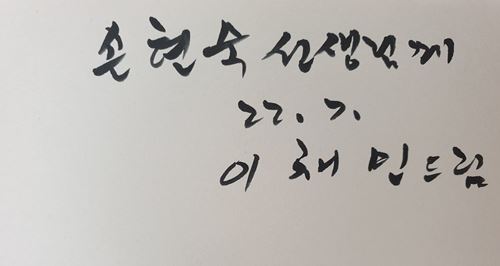 손현숙 선생님께
22. 7.
이채민드림